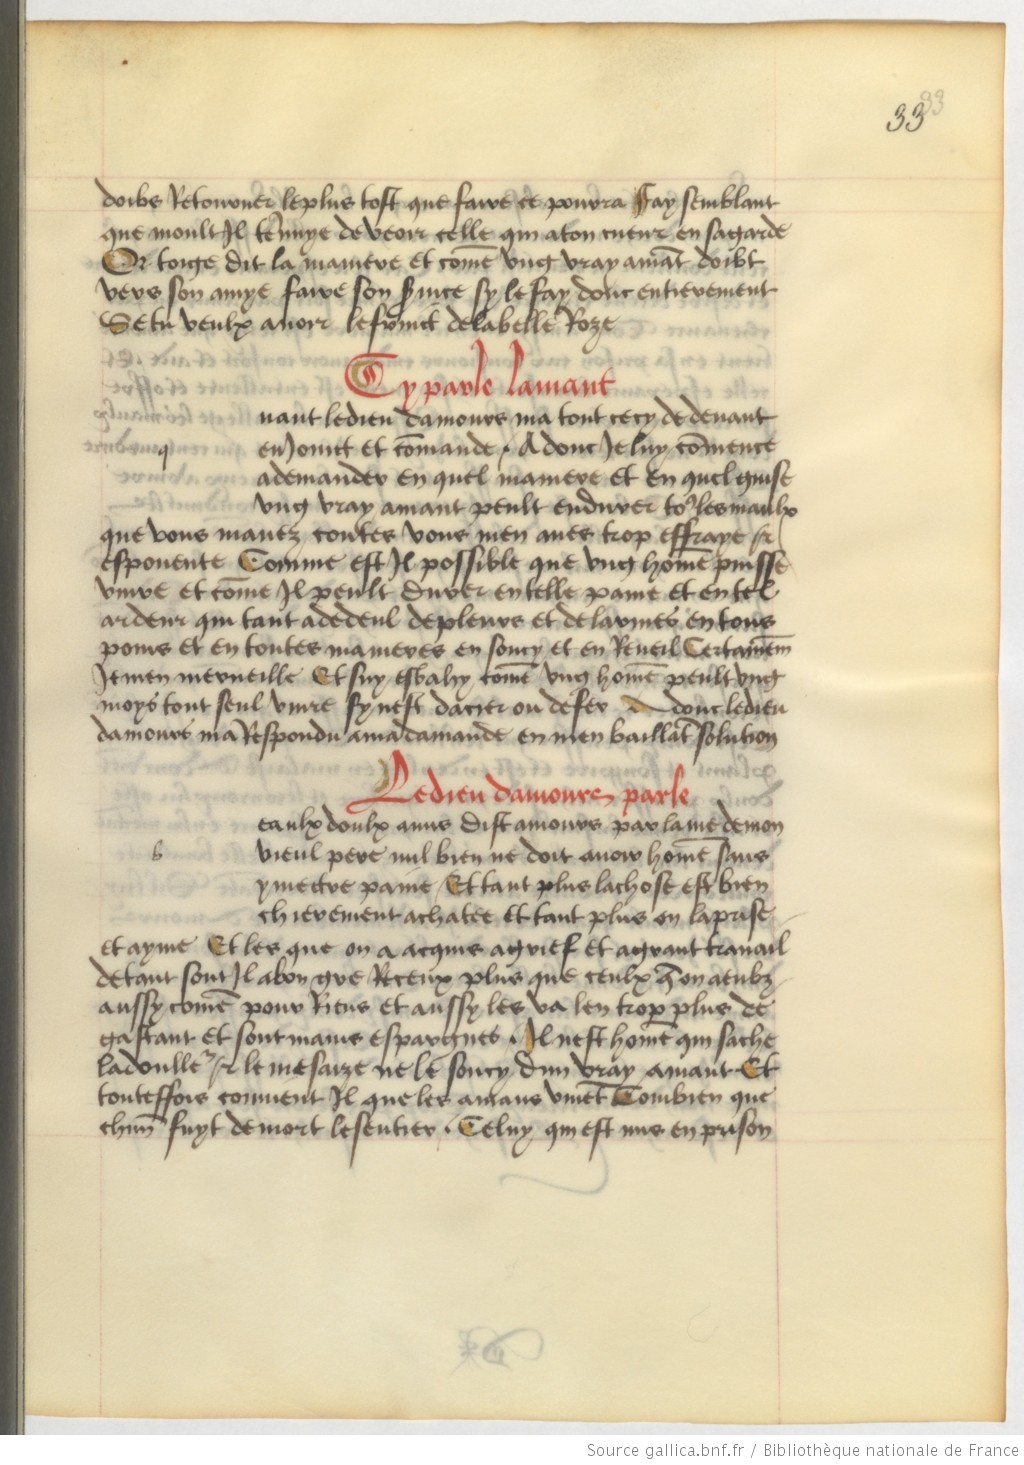 33 33
doibs Retourner le plus tost que faire ce pourra Fay semblant
que moult Il tennuye de veoir celle qui a ton cueur en sa garde
Or toige dit la maniere et come ung vray amat doibt
vers son amye faire son suice sy le fay donc entierement
Se tu veulx avoir le fruict de la belle Roze
Cy parle lamant
uant le dieu damours ma tout cecy de devant
q enJoinct et comande . Adonc Je luy comence
a demander en quel maniere et en quel guise
ung vray amant peult endurer to9 les maulx
que vous mavez contes vous men aves trop effraye
esponente Comme est Il possible que ung home puisse
vivre et come Il peult durer en telle paine et en tel
ardeur qui tant a de deul de pleurs et de larmes en tous
poins et en toutes manieres en soucy et en Reveil Certainem
Je men merveille Et suy esbahy come ung home peult ung
moys tout seul vivre sy nest dacier ou de fer Adonc le dieu
damours ma Respondu a ma damande en men baillat solution
Le dieu damours parle
eaulx doulx amis dist amours par lame de mon
b vieul pere nul bien ne doit avoir home sans
y mectre paine Et tant plus la chose est bien
chierement achatee et tant plus on la prise
et ayme Et les que on a acquis a grief et a grant travail
de tant sont Il a bon gre Receux plus que ceulx on a eubz
aussy come pour Riens et aussy les va len trop plus de
gastant et sont mains espargnes . Il nest home qui sache
la doulle le mesaize ne le soucy dun vray amant Et
touteffois convient Il que les amans vivet Combien que
chun fuyt de mort le sentier . Celuy qui est mis en prison
Source gallica.bnf.fr / Bibliothèque nationale de France